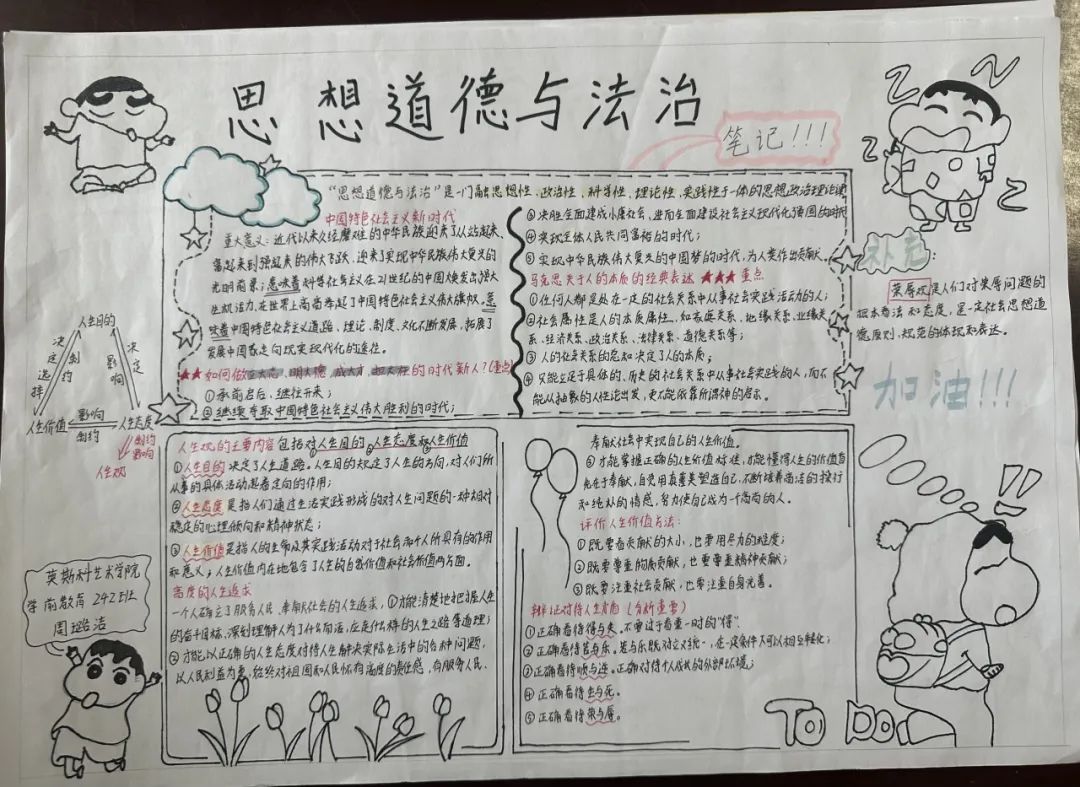 思想道德与法治
笔记!!!
“思想道德与法治”是一门融思想性、政治性、科学性、理论性、实践性于一体的思想政治理论课
中国特色社会主义新时代
重大意义：近代以来久经磨难的中华民族迎来了从站起来、
富起来到强起来的伟大飞跃，迎来了实现中华民族伟大复兴的
光明前景；意味着科学社会主义在21世纪的中国焕发出强大
生机活力，在世界上高高举起了中国特色社会主义伟大旗帜，意
味着中国特色社会主义道路、理论、制度、文化不断发展，拓展了
发展中国家走向现实现代化的途径。
★★如何做立大志、明大德、成大才、担大任的时代新人？(重点)
①承前启后、继往开来；
②继续夺取中国特色社会主义伟大胜利的时代；
③决胜全面建成小康社会，进而全面建设社会主义现代化强国的时代
④实现全体人民共同富裕的时代；
⑤实现中华民族伟大复兴的中国梦的时代，为人类作出贡献。
马克思关于人的本质的经典表述★★★重点
①任何人都是处在一定的社会关系中从事社会实践活动的人；
②社会属性是人的本质属性，如家庭关系、地缘关系、业缘关
系、经济关系、政治关系、法律关系、道德关系等；
③人的社会关系的总和决定了人的本质；
④只能立足于具体的、历史的社会关系中从事社会实践的人，而不
能从抽象的人性论出发，更不能依靠所谓神的启示。
补充：
荣辱观是人们对荣辱问题的
根本看法和态度，是一定社会思想道
德原则、规范的体现和表达。
加油!!!
人生目的
决定 制约
选择
决定
影响
人生价值 影响 制约 人生态度
制约
影响
人生观
人生观的主要内容包括对人生目的、人生态度和人生价值
①人生目的决定了人生道路。人生目的规定了人生的方向，对人们所
从事的具体活动起着定向的作用；
②人生态度是指人们通过生活实践形成的对人生问题的一种相对
稳定的心理倾向和精神状态；
③人生价值是指人的生命及其实践活动对于社会和个人所具有的作用
和意义；人生价值内在地包含了人生的自我价值和社会价值两方面。
高度的人生追求
一个人确立了服务人民、奉献社会的人生追求，①才能清楚地把握人生
的奋斗目标，深刻理解人为了什么而活，应走什么样的人生之路等道理；
②才能以正确的人生态度对待人生解决实际生活中的各种问题，
以人民利益为重，始终对祖国和人民怀有高度的责任感，在服务人民、
奉献社会中实现自己的人生价值。
③才能掌握正确的人生价值标准，才能懂得人生的价值首
先在于奉献，自觉用真善美塑造自己，不断培养高洁的操行
和纯朴的情感，努力使自己成为一个高尚的人。
评价人生价值方法：
①既要看贡献的大小，也要用尽力的程度；
②既要尊重物质贡献，也要尊重精神贡献；
③既要注重社会贡献，也要注重自身完善。
辩证对待人生矛盾（分析重要）
①正确看待得与失。不要过于看重一时的“得”
②正确看待苦与乐。苦与乐既对立又统一，在一定条件下可以相互转化；
③正确看待顺与逆。正确对待个人成长的外部环境；
④正确看待生与死。
⑤正确看待荣与辱。
莫斯科艺术学院
学前教育242班
TO DO.